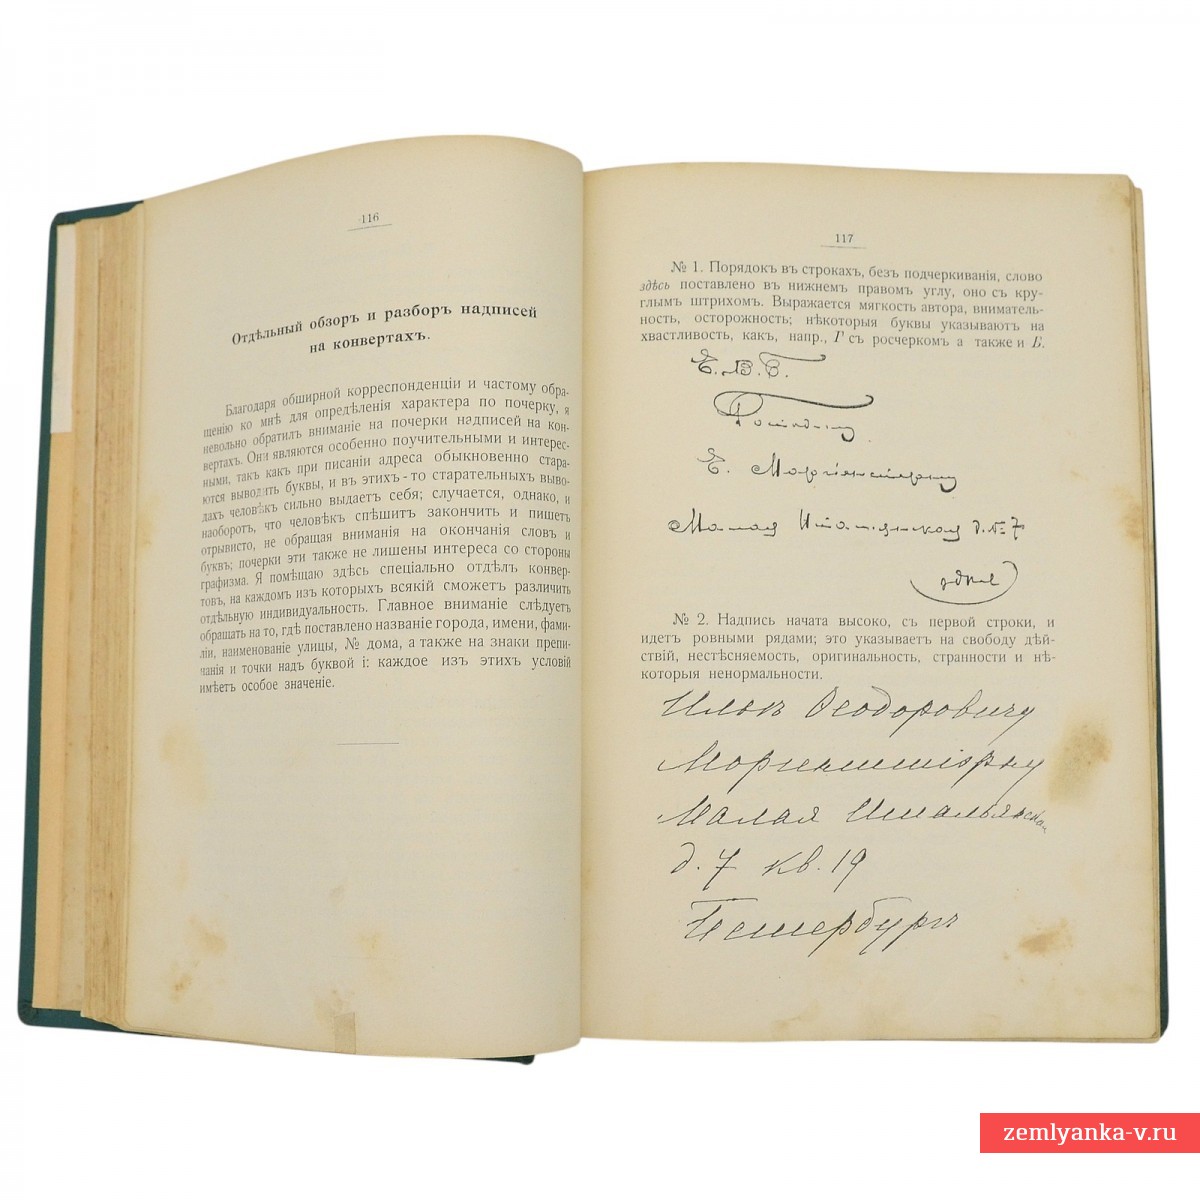 116
Отдѣльный обзоръ и разборъ надписей
на конвертахъ.
Благодаря обширной корреспонденціи и частому обра-
щенію ко мнѣ для опредѣленія характера по почерку, я
невольно обратилъ вниманіе на почерки надписей на кон-
вертахъ. Они являются особенно поучительными и интерес-
ными, такъ какъ при писаніи адреса обыкновенно стара-
ются выводить буквы, и въ этихъ-то старательныхъ выво-
дахъ человѣкъ сильно выдаетъ себя; случается, однако, и
наоборотъ, что человѣкъ спѣшитъ закончить и пишетъ
отрывисто, не обращая вниманія на окончанія словъ и
буквъ; почерки эти также не лишены интереса со стороны
графизма. Я помѣщаю здѣсь спеціально отдѣлъ конвер-
товъ, на каждомъ изъ которыхъ всякій сможетъ различить
отдѣльную индивидуальность. Главное вниманіе слѣдуетъ
обращать на то, гдѣ поставлено названіе города, имени, фами-
ліи, наименованіе улицы, № дома, а также на знаки препи-
чанія и точки надъ буквой і: каждое изъ этихъ условій
имѣетъ особое значеніе.
117
№ 1. Порядокъ въ строкахъ, безъ подчеркиванія, слово
здѣсь поставлено въ нижнемъ правомъ углу, оно съ кру-
глымъ штрихомъ. Выражается мягкость автора, вниматель-
ность, осторожность; нѣкоторыя буквы указываютъ на
хвастливость, какъ, напр., Г съ росчеркомъ а также и Б.
Е. В. Б.
Господину
Е. Моргенстерну
Малая Итальянская д. № 7
здѣсь
№ 2. Надпись начата высоко, съ первой строки, и
идетъ ровными рядами; это указываетъ на свободу дѣй-
ствій, нестѣсняемость, оригинальность, странности и нѣ-
которыя ненормальности.
Ильѣ Ѳеодоровичу
Моргенштіерну
Малая Итальянская
д. 7 кв. 19
Петербургъ
zemlyanka-v.ru